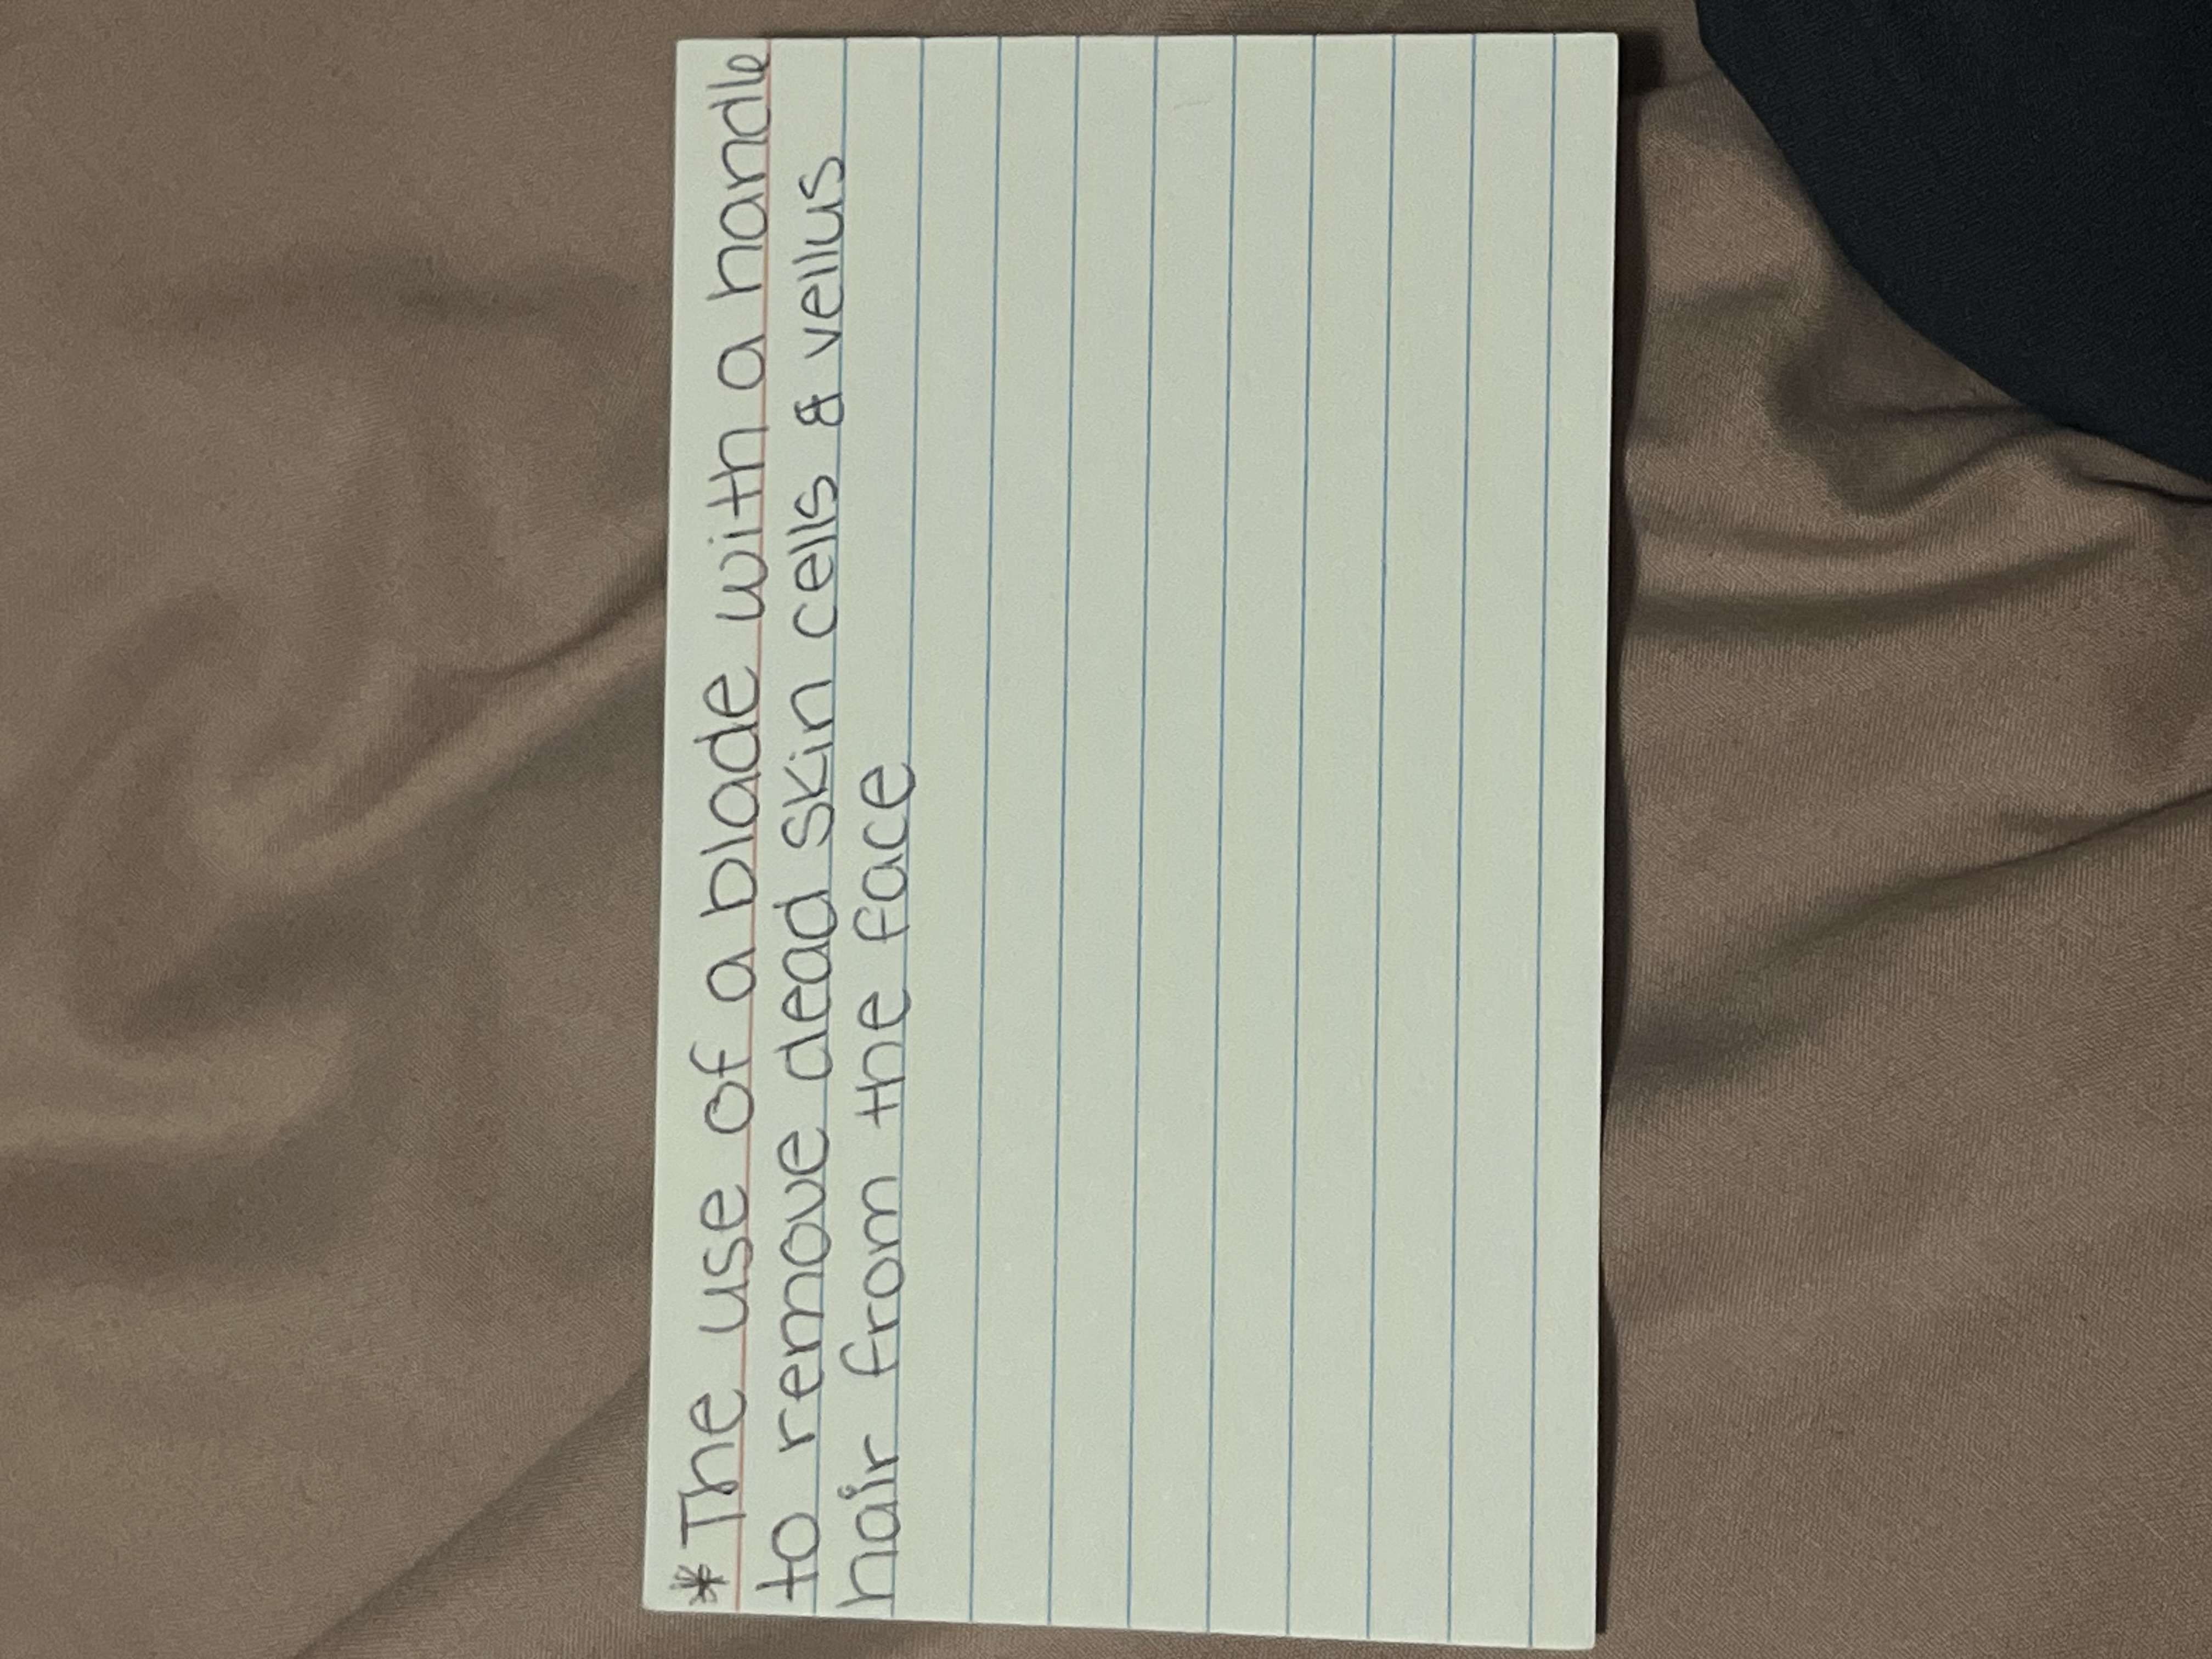 *The use of a blade with a handle
to remove dead skin cells & vellus
hair from the face